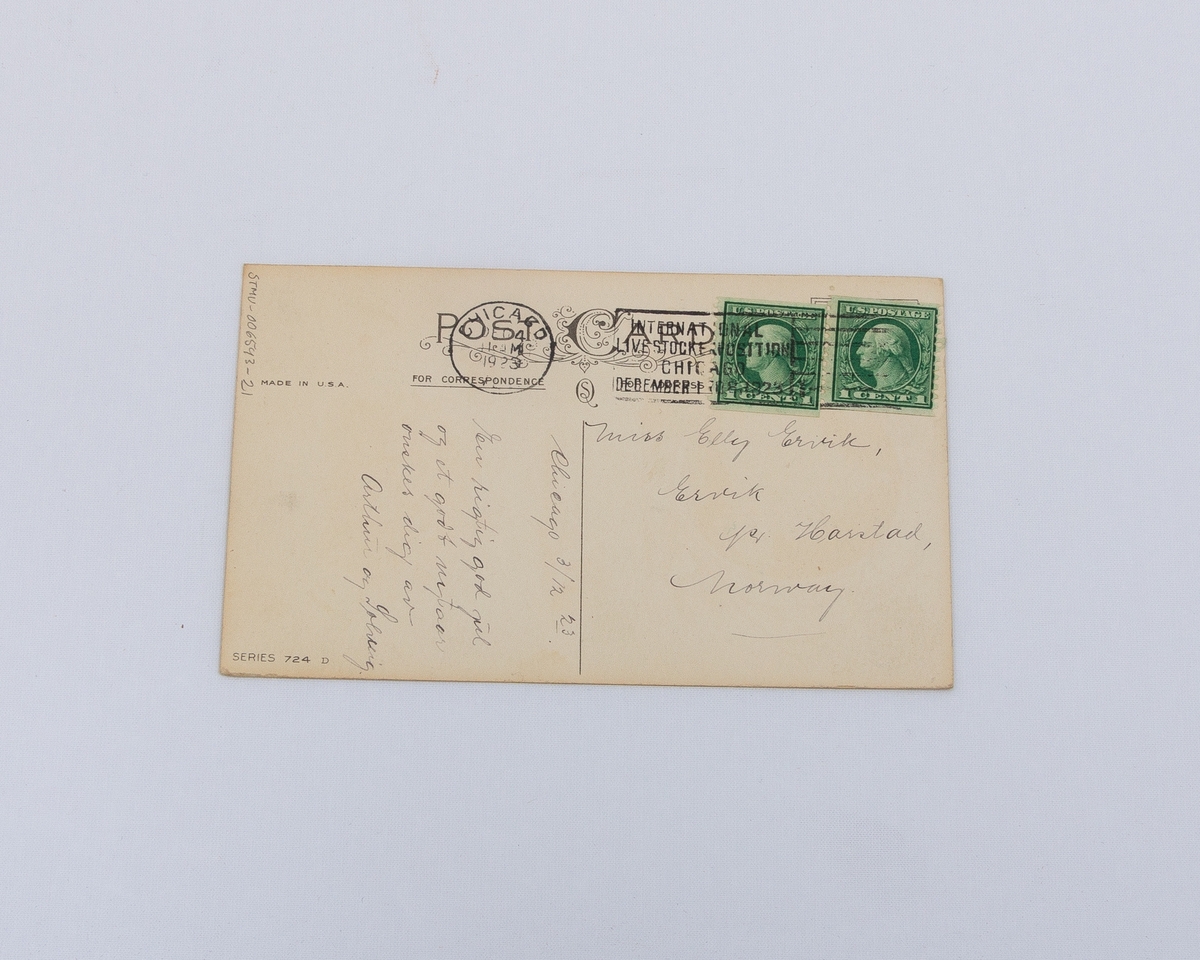 STMU-006543-21
MADE IN U.S.A.
POST CARD
CHICAGO
4
M
1923
INTERNATIONAL
LIVESTOCK EXPOSITION
CHICAGO
DECEMBER 1
U.S. POSTAGE
1 CENT 1
U.S. POSTAGE
1 CENT 1
FOR CORRESPONDENCE
FOR ADDRESS
Chicago 3/12 23.
En rigtig god jul
og et godt nytaar
ønskes dig av
Arthur og Solveig.
Miss Elly Ervik,
Ervik
pr. Harstad,
Norway.
SERIES 724 D